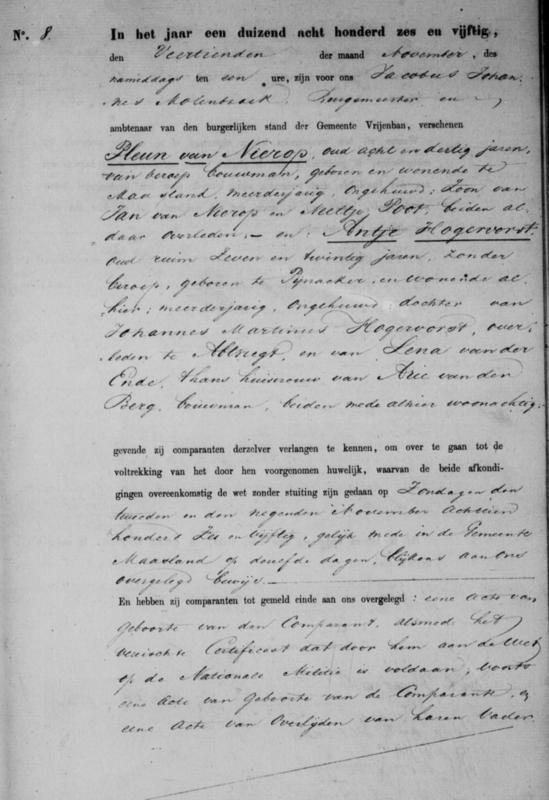 No. 8. In het jaar een duizend acht honderd zes en vijftig,
den Veertienden der maand November, des
namiddags ten een ure, zijn voor ons Jacobus Johan
nes Molenbroek Burgemeester en
ambtenaar van den burgerlijken stand der Gemeente Vrijenban, verschenen
Pleun van Nierop, oud acht en dertig jaren,
van beroep bouwman, geboren en wonende te
Maasland, meerderjarig, ongehuwd; Zoon van
Jan van Nierop en Meltje Poot, beiden al
daar overleden, — en Antje Hogervorst,
oud ruim Zeven en twintig jaren, Zonder
beroep, geboren te Pijnacker, en wonende al
hier; meerderjarig, Ongehuwd dochter van
Johannes Martinus Hogervorst, over
leden te Abtsregt, en van Lena van der
Ende, thans huisvrouw van Arie van den
Berg, bouwman, beiden mede alhier woonachtig.
gevende zij comparanten derzelver verlangen te kennen, om over te gaan tot de
voltrekking van het door hen voorgenomen huwelijk, waarvan de beide afkondi-
gingen overeenkomstig de wet zonder stuiting zijn gedaan op Zondagen den
tweeden en den negenden November achttien
honderd Zes en vijftig, gelijk mede in de Gemeente
Maasland op dezelfde dagen, blijkens aan ons
overgelegd bewijs.
En hebben zij comparanten tot gemeld einde aan ons overgelegd: eene Acte van
geboorte van den Comparant, alsmede het
vereischte Certificaat dat door hem aan de Wet
op de Nationale Militie is voldaan; voorts
eene Acte van Geboorte van de Comparante, en
eene Acte van Overlijden van haren Vader